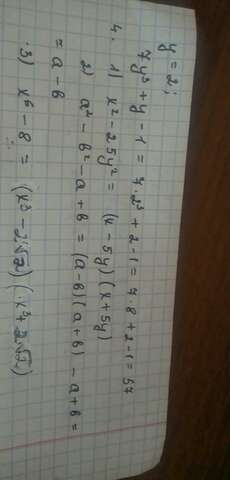 y = 2;
7y³ + y - 1 = 7 · 2³ + 2 - 1 = 7 · 8 + 2 - 1 = 57
4. 1) x² - 25y² = (x - 5y)(x + 5y)
2) a² - b² - a + b = (a - b)(a + b) - a + b =
= a - b
3) x⁶ - 8 = (x³ - 2√2)(x³ + 2√2)